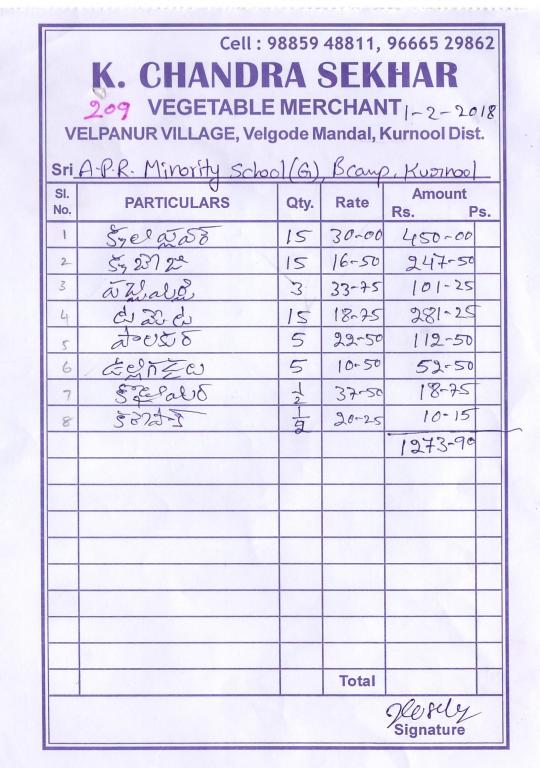 Cell : 98859 48811, 96665 29862
K. CHANDRA SEKHAR
209 VEGETABLE MERCHANT 1-2-2018
VELPANUR VILLAGE, Velgode Mandal, Kurnool Dist.
Sri A.P.R. Minority School(G), Bcamp, Kurnool
Sl. No. PARTICULARS Qty. Rate Amount Rs. Ps.
1 15 30-00 450-00
2 15 16-50 247-50
3 3 33-75 101-25
4 టమోట 15 18-75 281-25
5 పాలకూర 5 22-50 112-50
6 ఉల్లిగడ్డలు 5 10-50 52-50
7 1/2 37-50 18-75
8 1/2 20-25 10-15
1273-90
Total
Signature